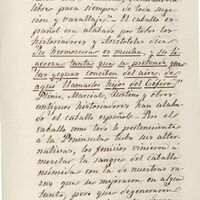 libre para siempre de toda suje-
cion y varallaje". El caballo es-
pañol era alabado por todos los
historiadores y Aristoteles dice:
Su hermosura es mucha, y su li-
gereza tanta que se pretende que
las yeguas conciben del aire, de
aquí llamarlos hijos del Céfiro
Plinio, Marcial, Justino y otros
antiguos historiadores han alaba-
do el caballo español - Pero el
caballo como todo lo perteneciente
a la Peninsula tubo sus alter-
nativas, los fenicios vinieron a
mezclar la sangre del caballo
númida con la de nuestras ra-
zas que se mejoraron en algun
tanto, pero que degeneraron